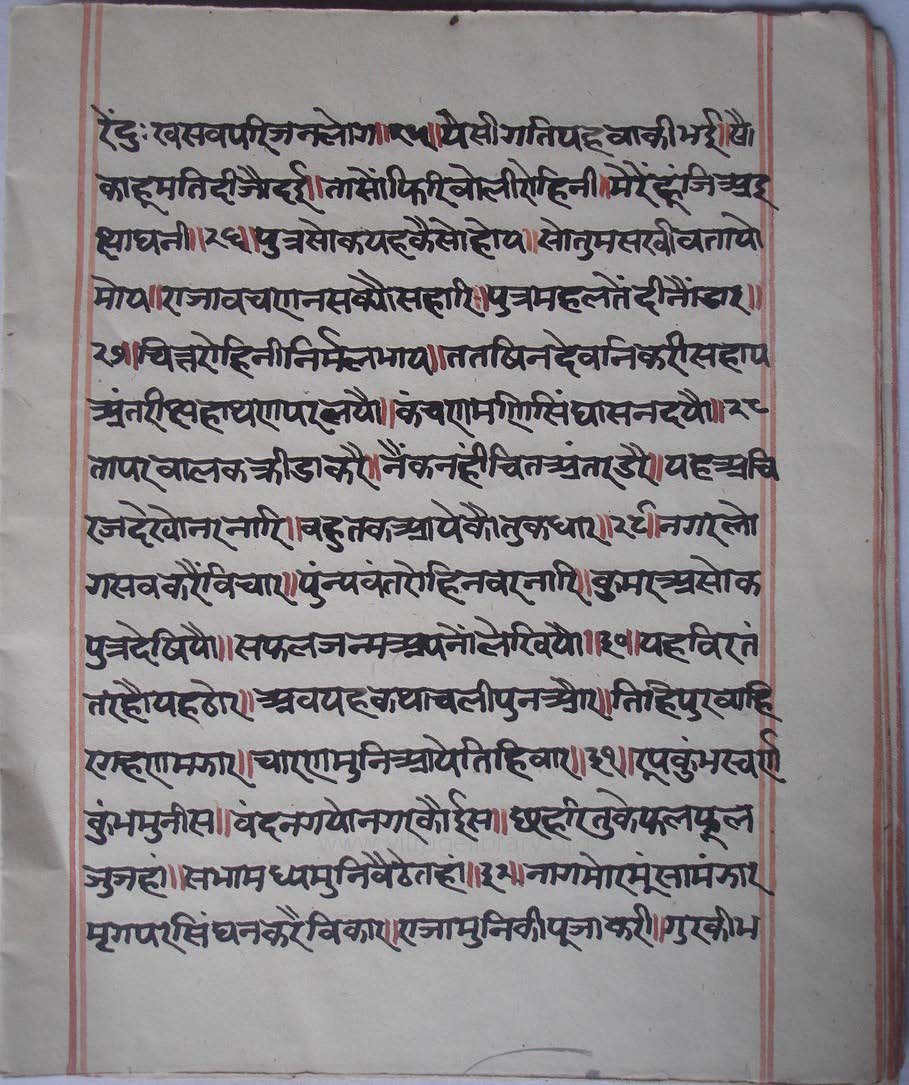 रेंदुःखसवपरिजनलोग॥२५॥पैसीगतिपहवाकीभई॥सौ
काहूमतिदीजौदई॥तासौंफिरिवोलीरोहिनी॥मेरैंहूंजिअइ
थाघनी॥२६॥पुत्रसोकपहकैसोहोप॥सोतुमसखीवतापो
मोप॥राजावचणनसक्यौसहारि॥पुत्रमहलतैंदीनौंडार॥
२७॥चित्तरोहिनीनिर्मलभाप॥ततषिनदेवनिकरीसहाप
अंतरीछहाथणपरलपौ॥कंचणमणिसिंघासनदपौ॥२८
तापरवालकक्रीडाकरै॥नैंकनंहीचितअंतरडरै॥पहअचि
रजदेखोनरनारि॥वहुतकआपेकौतुकधार॥२९॥नगरलो
गसवकरैंविचार॥पुंन्पवंतरोहिनवरनारि॥कुमरअसोक
पुत्रदेषिपौ॥सफलजन्मअपनौंलेखिपौ॥३०॥पहविरतं
तरहौपहठोर॥अवपहकथाचलीपुनऔर॥तिहिपुरवाहि
रगहणमझार॥चारणमुनिआपेतिहिवार॥३१॥रूपकुंभस्वर्ण
कुंभमुनीस॥वंदनगपोनगरकौईस॥छहरितुकेफलफूल
जुजहां॥सभामध्पमुनिवैठेतहां॥३२॥नागमोरमूंसामंझार
मृगपरसिंघनकरैविकार॥राजामुनिकीपूजाकरी॥गुरकीभ